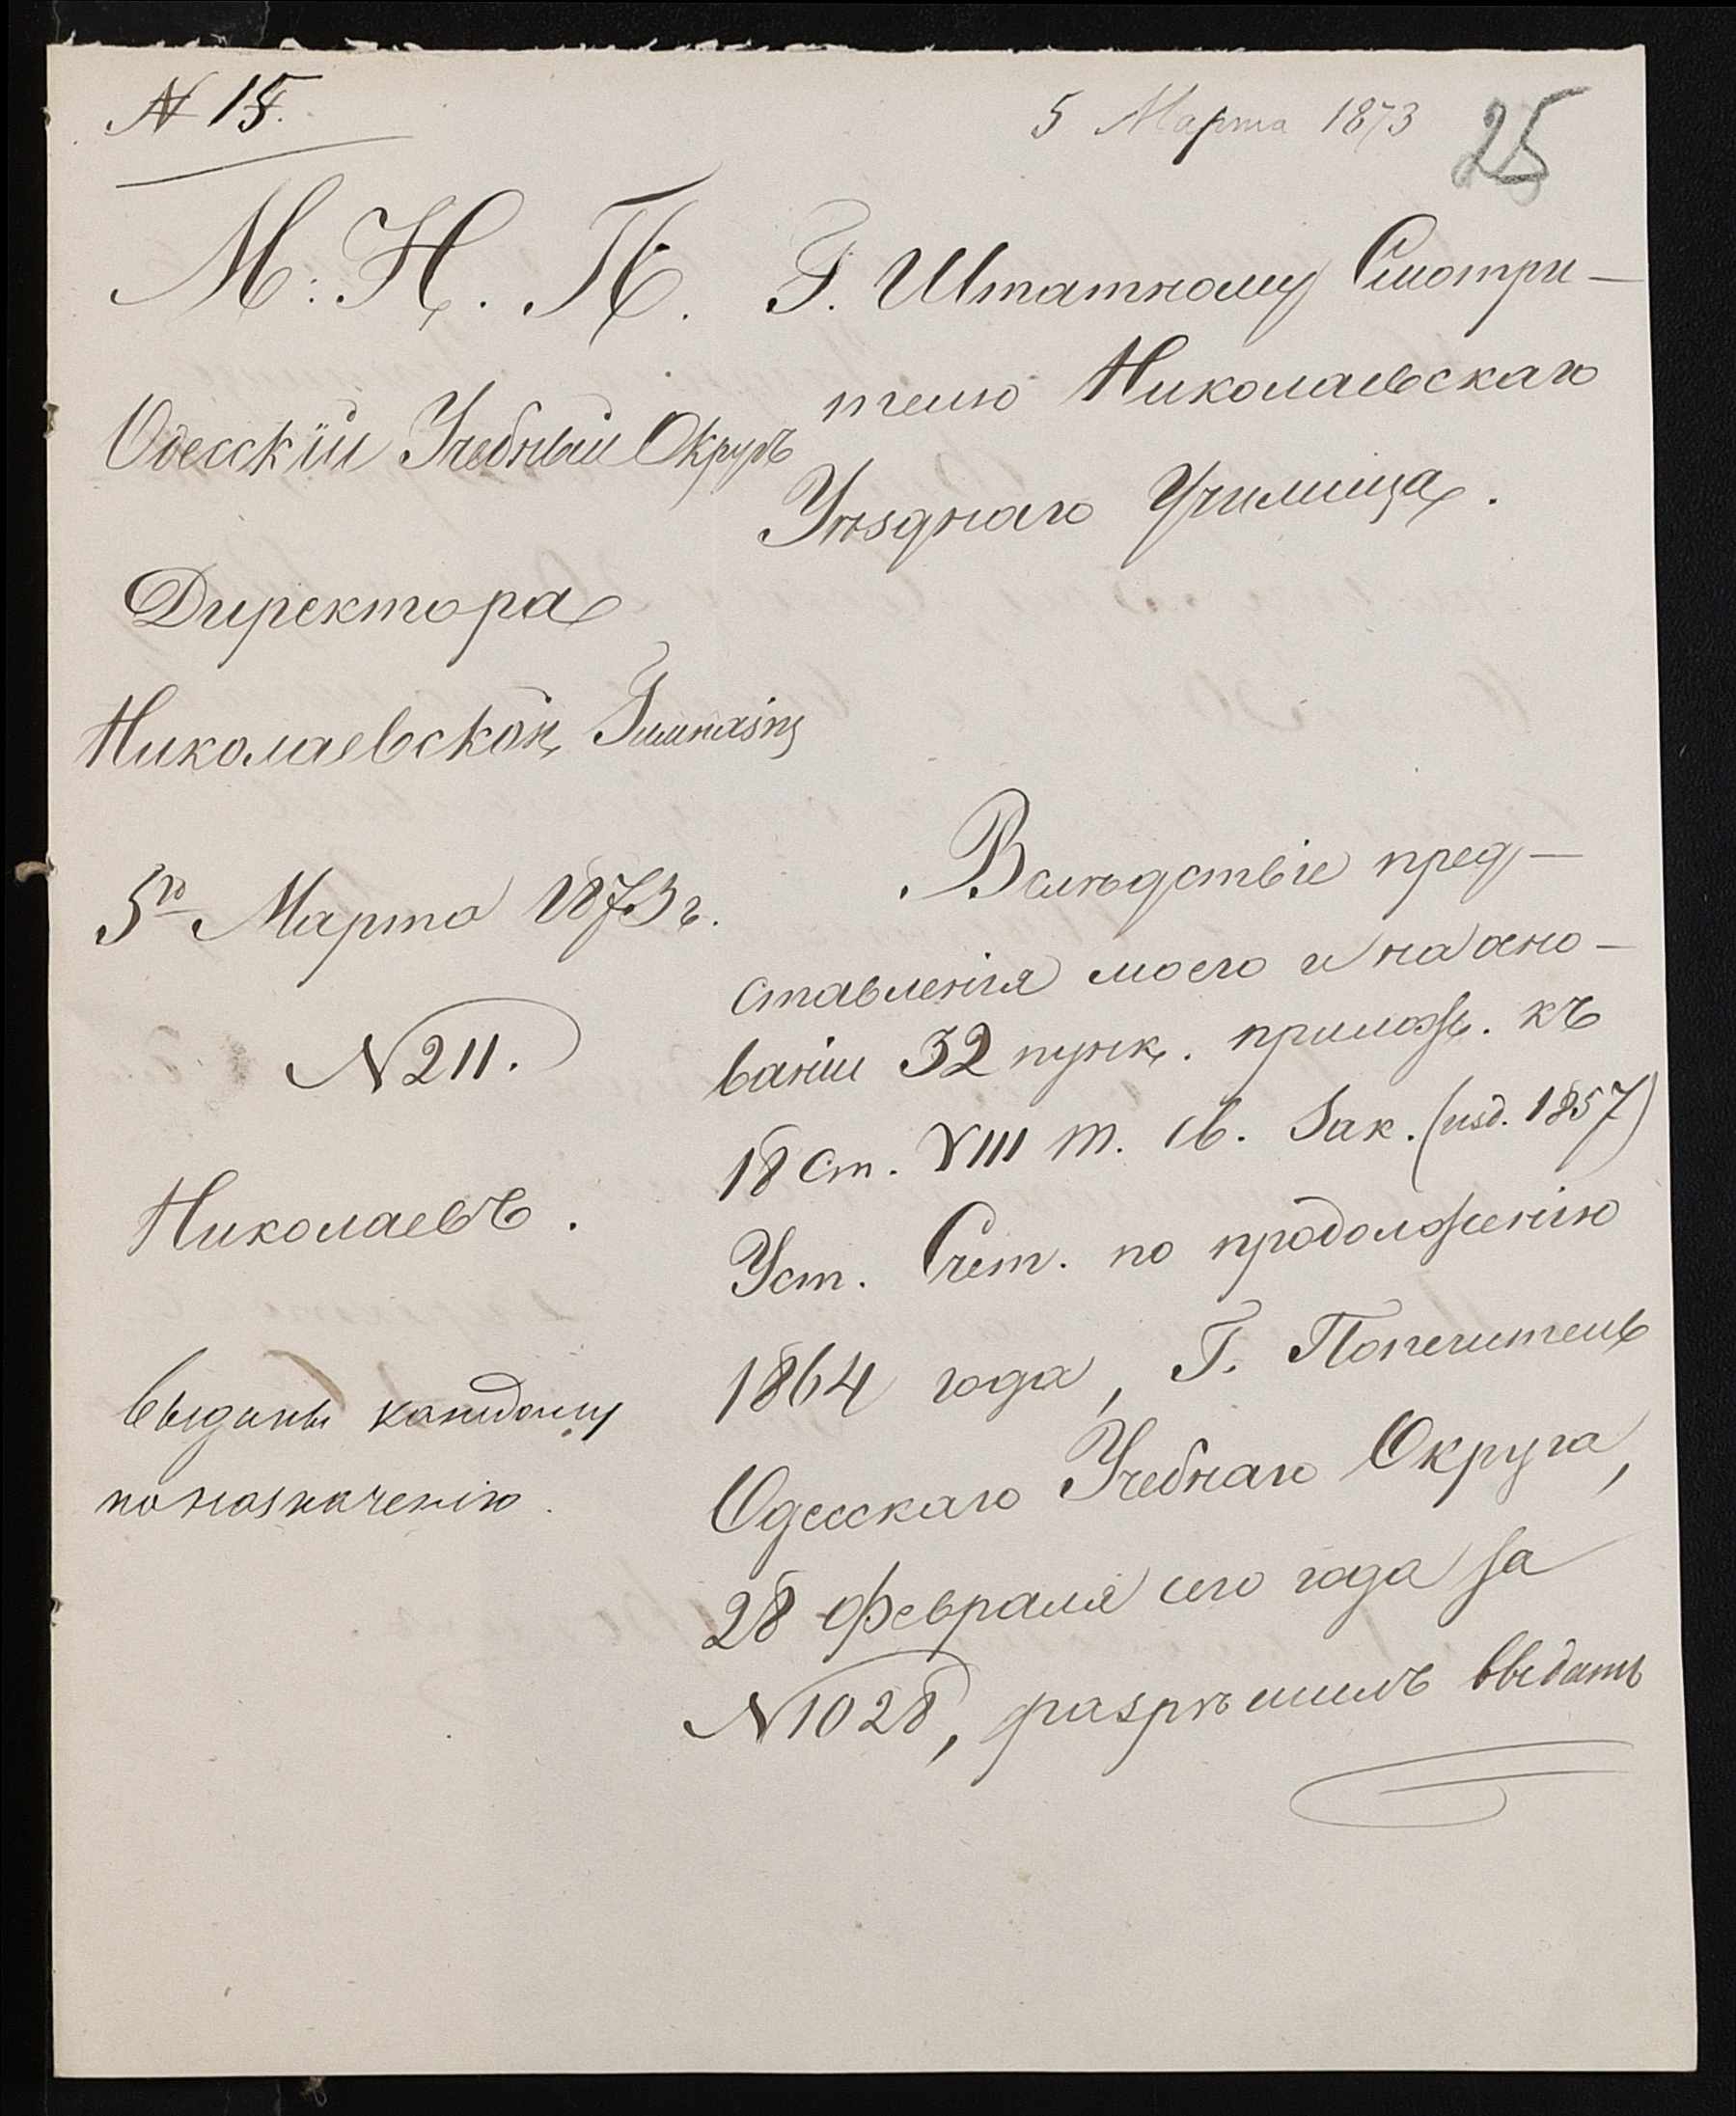 № 15.
5 Марта 1873
25
М. Н. П.
Одесскій Учебный Округъ
Директора
Николаевской Гимназіи
5го Марта 1873 г.
№ 211.
Николаевъ.
выданы каждому
по назначенію.
Г. Штатному Смотри-
телю Николаевскаго
Уѣзднаго Училища.
Вслѣдствіе пред-
ставленія моего и на осно-
ваніи 32 пунк. прилож. къ
18 ст. VIII т. Св. Зак. (изд. 1857)
Уст. Счет. по продолженію
1864 года, Г. Попечитель
Одесскаго Учебнаго Округа,
28 февраля сего года за
№ 1028, разрѣшилъ выдать